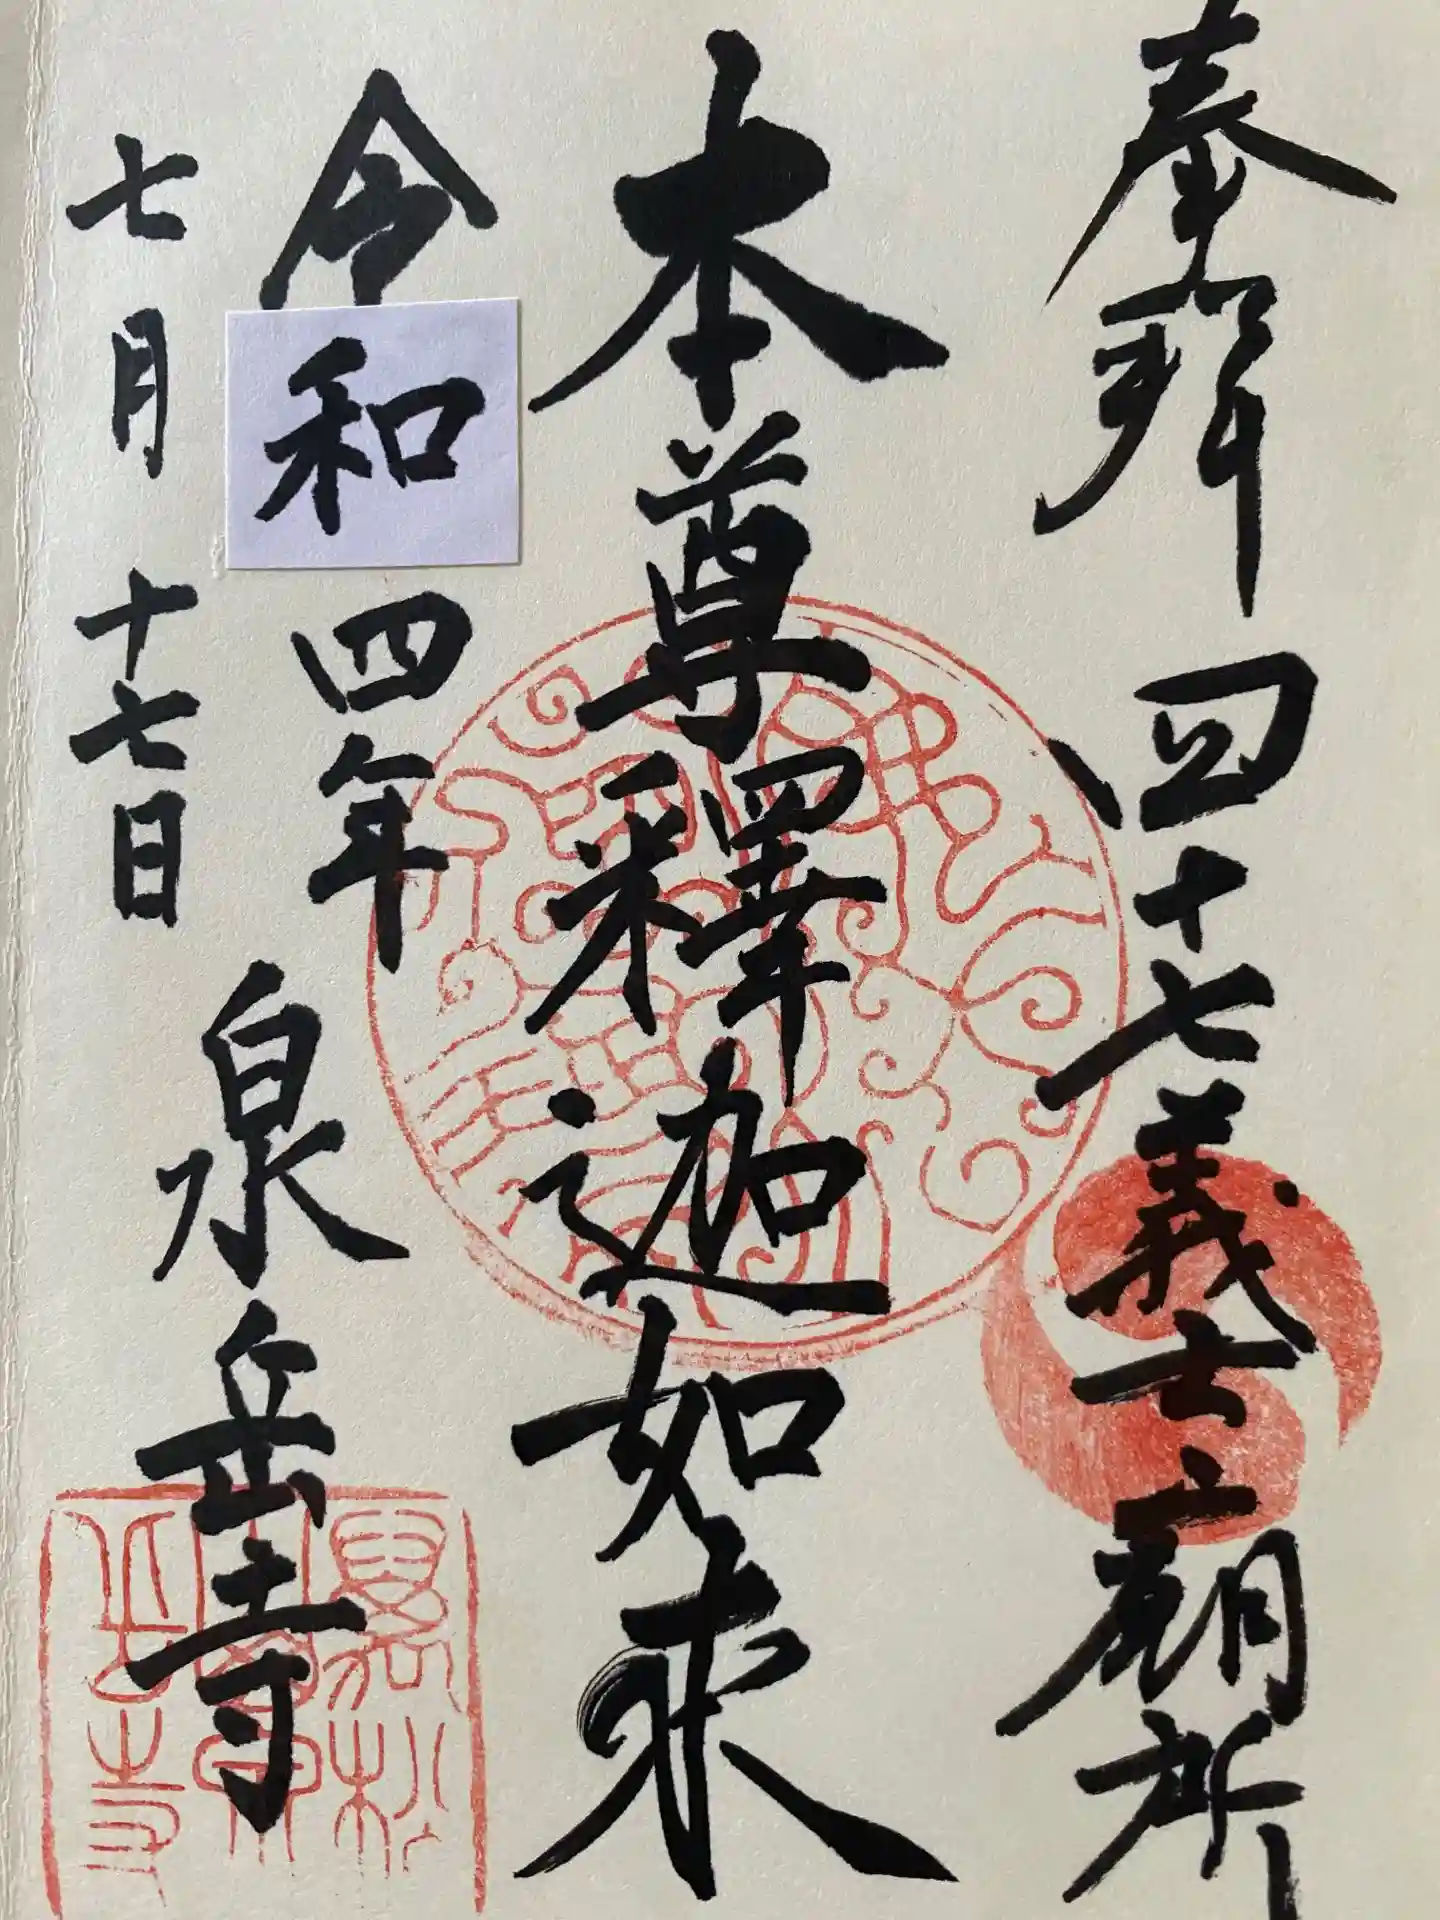 奉拜 四十七義士廟所
本尊釋迦如来
令和四年 泉岳寺
七月十七日